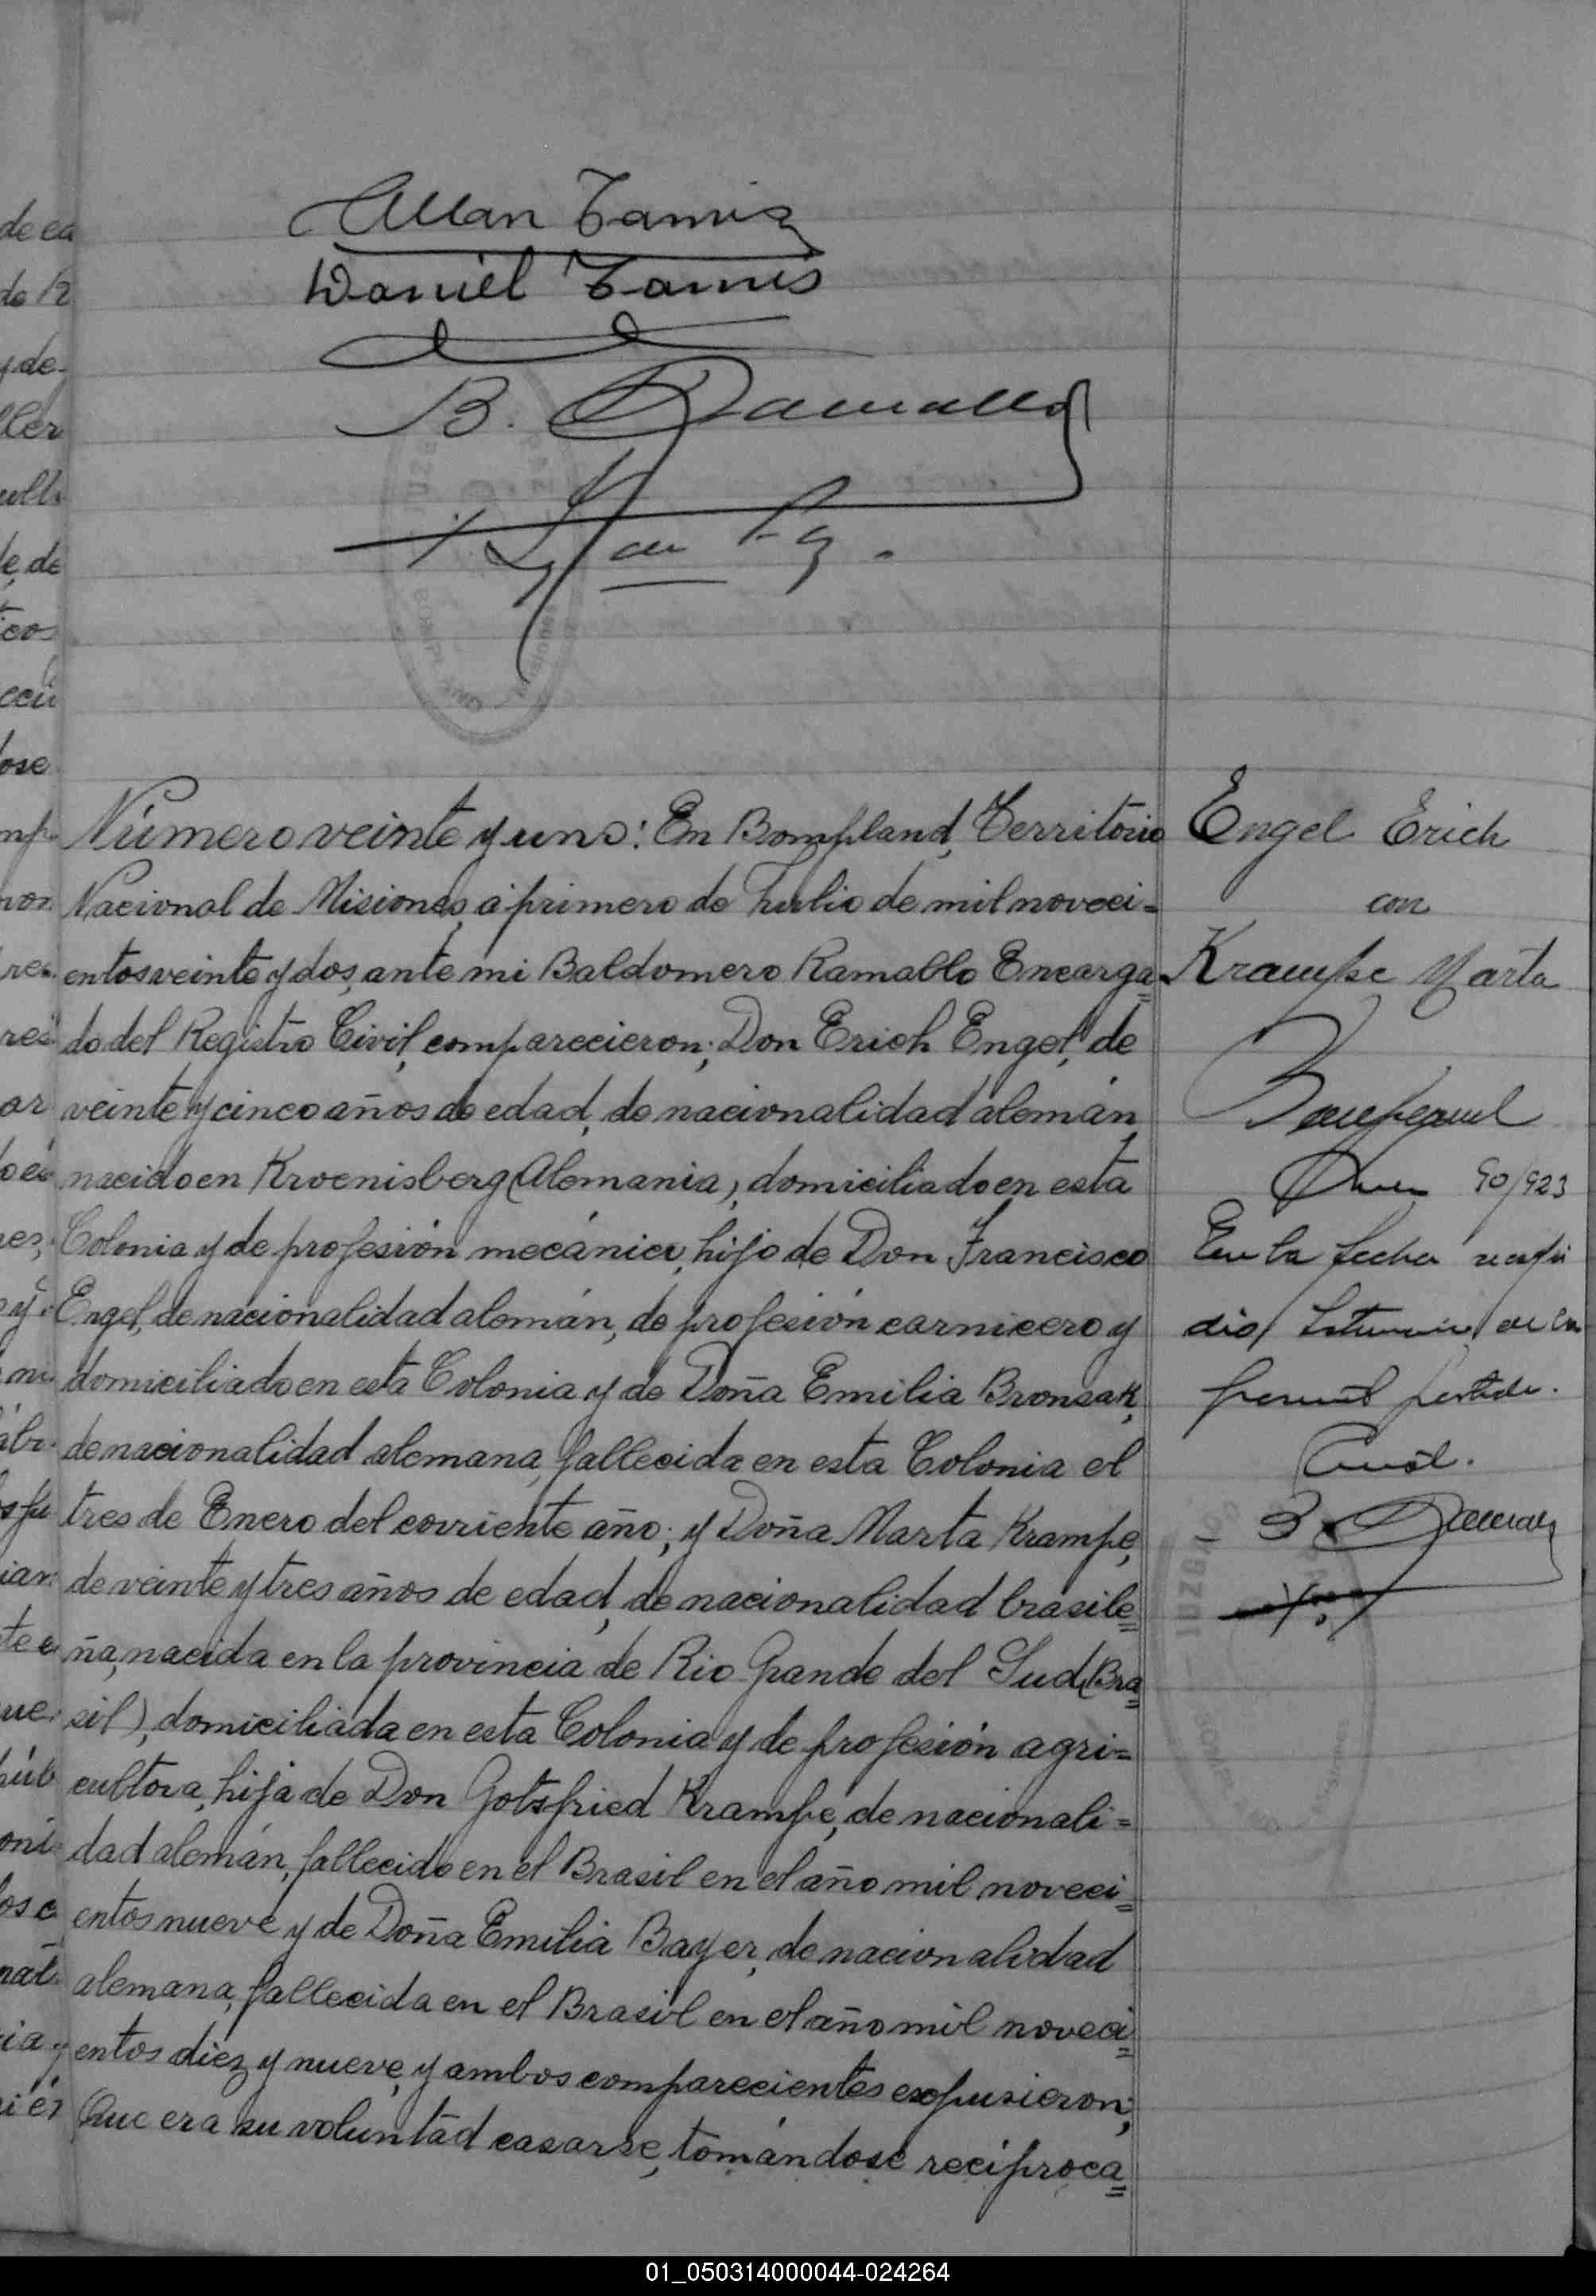 Allan Tamis
Daniel Tamis
B. Ramallo
Número veinte y uno: En Bompland, Territorio
Nacional de Misiones, á primero de Julio de mil noveci=
entos veinte y dos, ante mi Baldomero Ramallo Encarga=
do del Registro Civil, comparecieron; Don Erich Engel, de
veinte y cinco años de edad, de nacionalidad alemán,
nacido en Kroenisberg (Alemania), domiciliado en esta
Colonia y de profesión mecánico, hijo de Don Francisco
Engel, de nacionalidad alemán, de profesión carnicero y
domiciliado en esta Colonia y de Doña Emilia Bronsak,
de nacionalidad alemana, fallecida en esta Colonia el
tres de Enero del corriente año; y Doña Marta Krampe,
de veinte y tres años de edad, de nacionalidad brasile=
ña, nacida en la provincia de Rio Grande del Sud (Bra=
sil), domiciliada en esta Colonia y de profesión agri=
cultora, hija de Don Gotsfried Krampe, de nacionali=
dad alemán, fallecido en el Brasil en el año mil noveci=
entos nueve y de Doña Emilia Bayer, de nacionalidad
alemana, fallecida en el Brasil en el año mil noveci=
entos diez y nueve, y ambos comparecientes expusieron;
Que era su voluntad casarse, tomándose recíproca=
Engel Erich
con
Krampe Marta
90/923
En la fecha se expi
dió testimonio de la
presente partida.
Const.
01_050314000044-024264